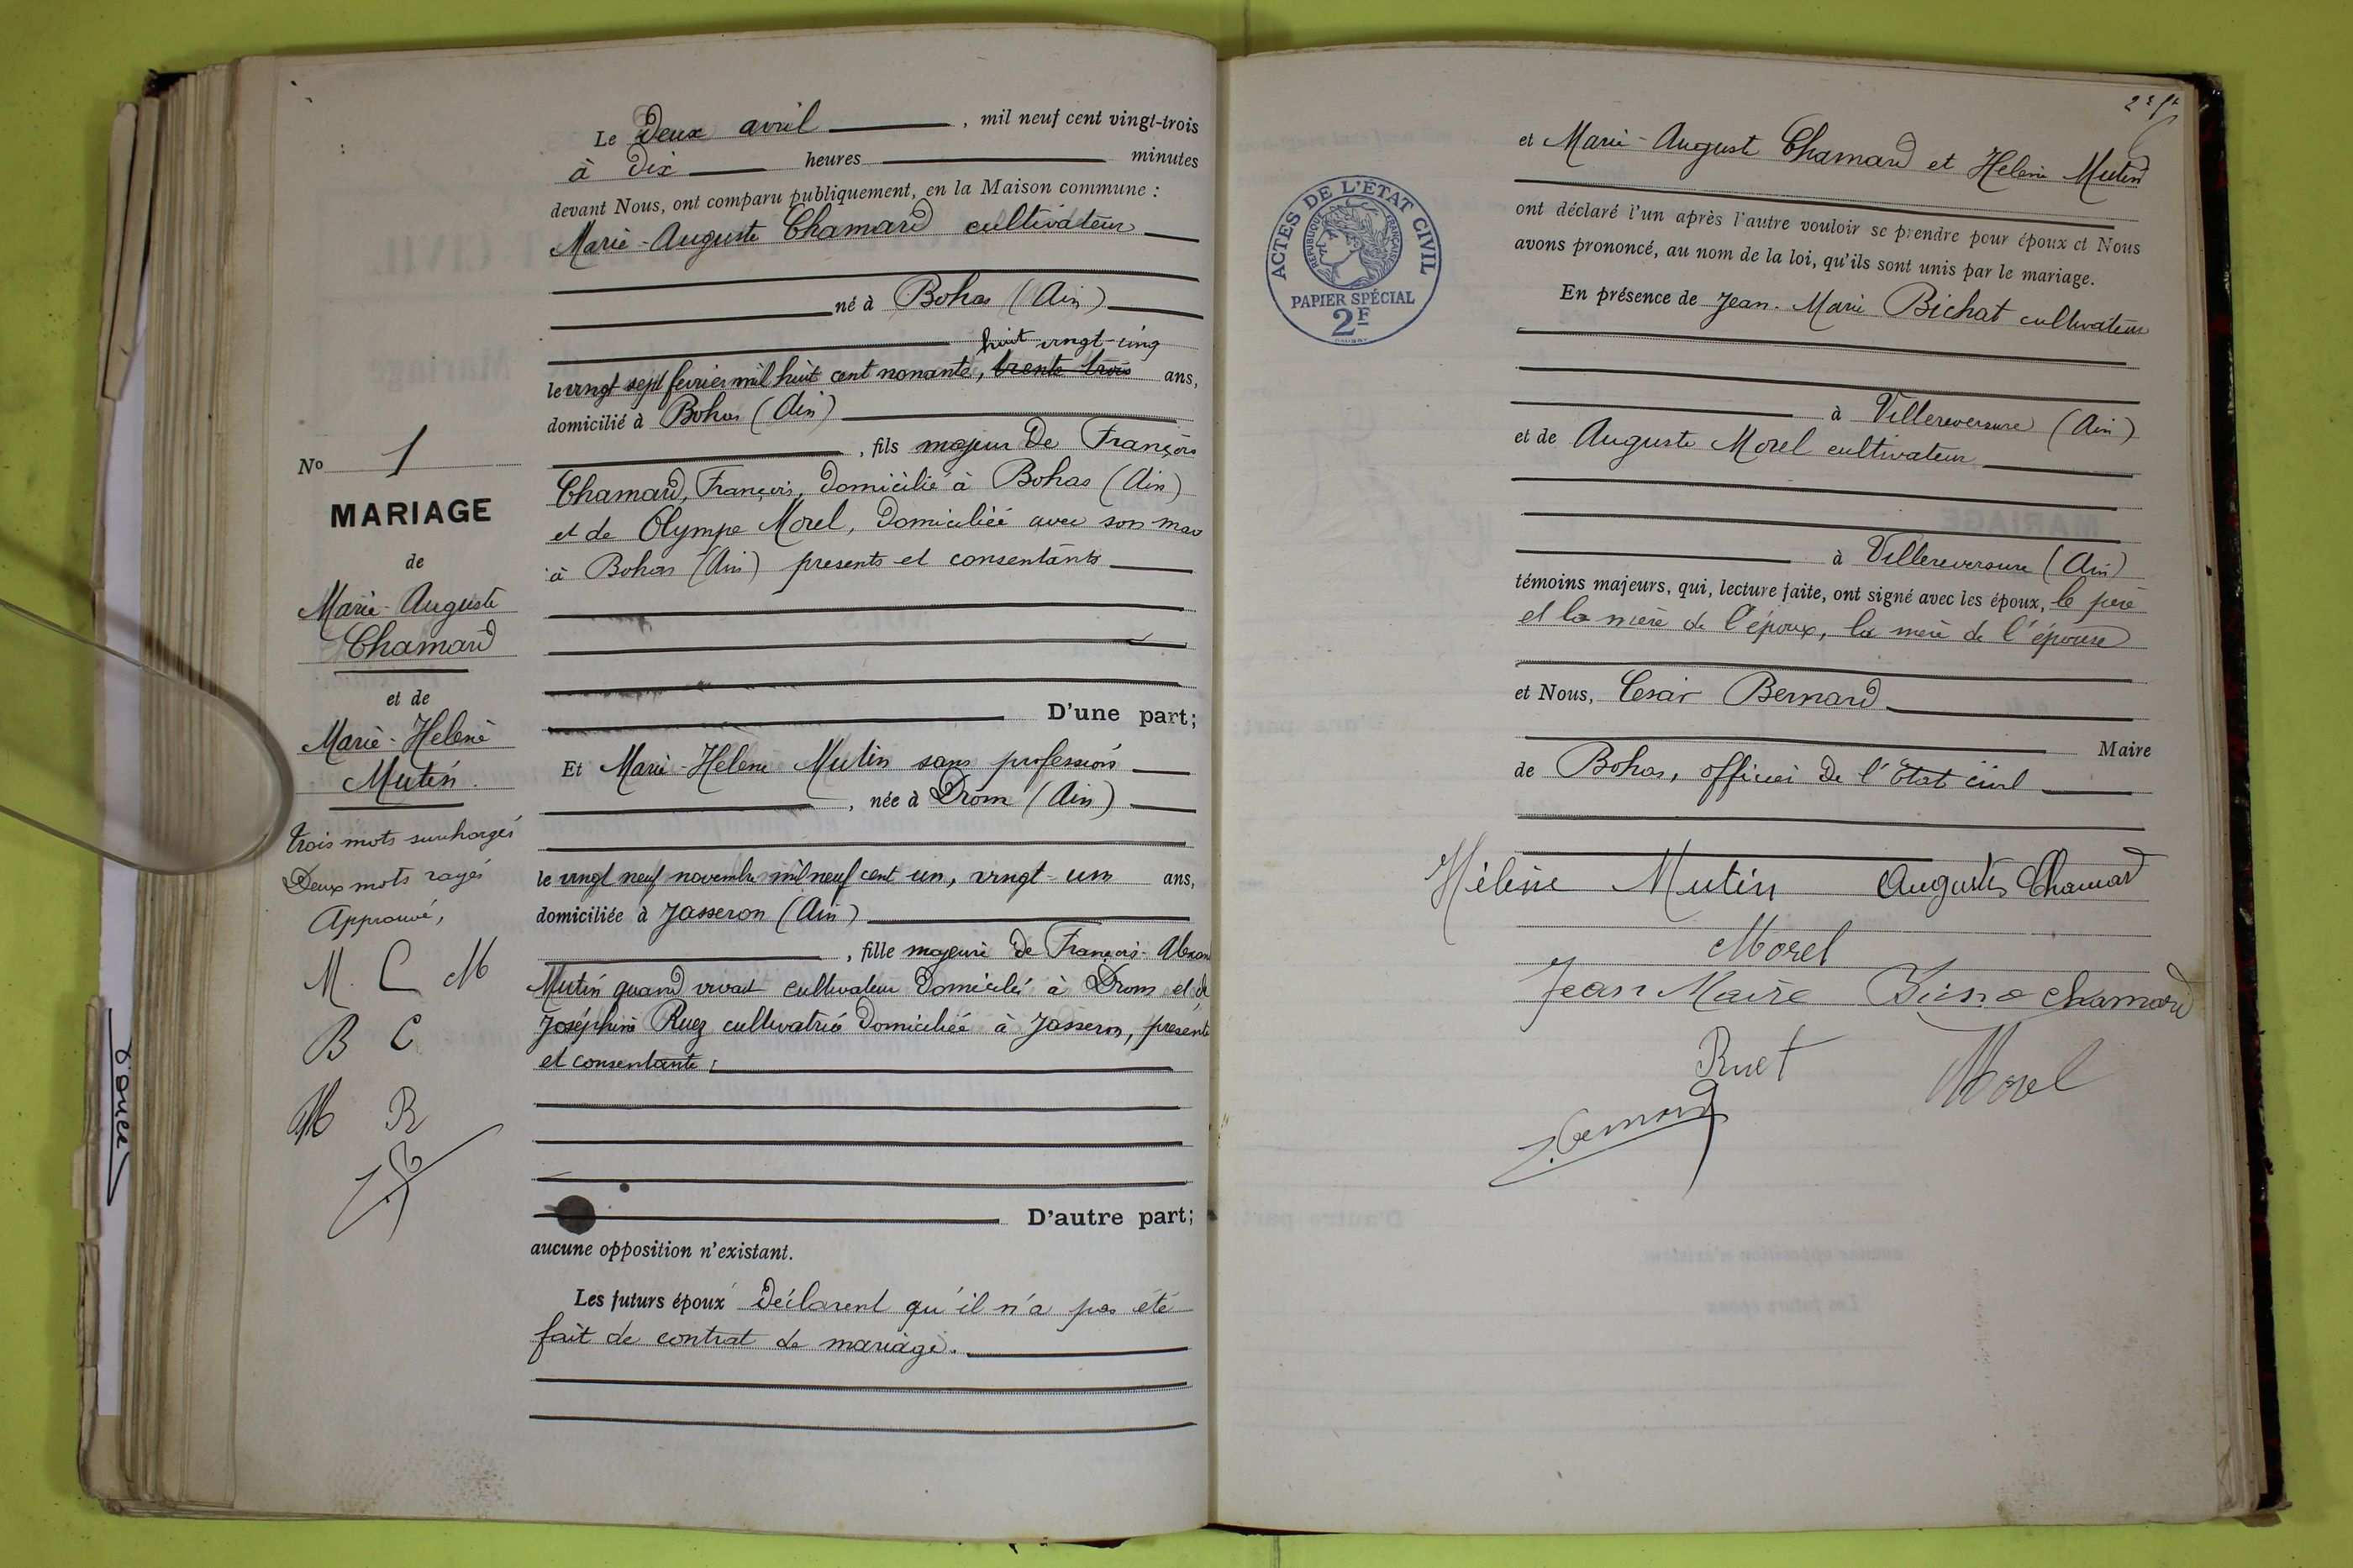 Le Deux avril, mil neuf cent vingt-trois
à dix heures minutes
devant Nous, ont comparu publiquement, en la Maison commune :
Marie-Auguste Chamard cultivateur
né à Bohas (Ain)
huit vingt-cinq
le vingt sept fevrier mil huit cent nonante, trente trois ans,
domicilié à Bohas (Ain)
, fils majeur de François
Chamard, François, domicilié à Bohas (Ain)
et de Olympe Morel, domiciliée avec son mari
à Bohas (Ain) presents et consentants
D'une part;
No 1
MARIAGE
de
Marie-Auguste
Chamard
et de
Marie-Helene
Mutin.
trois mots surchargés
Deux mots rayés
Approuvé,
M. C M
B C
M R
Et Marie-Helene Mutin sans profession
, née à Drom (Ain)
le vingt neuf novembre mil neuf cent un, vingt-un ans,
domiciliée à Jasseron (Ain)
, fille majeure de François-
Mutin quand vivait cultivateur domicilié à Drom et de
Joséphine Ruez cultivatrice domiciliée à Jasseron, présente
et consentante;
D'autre part;
aucune opposition n'existant.
Les futurs époux déclarent qu'il n'a pas été
fait de contrat de mariage.
ACTES DE L'ETAT CIVIL
REPUBLIQUE FRANÇAISE
PAPIER SPÉCIAL
2F
et Marie-Auguste Chamard et Helene Mutin
ont déclaré l'un après l'autre vouloir se prendre pour époux et Nous
avons prononcé, au nom de la loi, qu'ils sont unis par le mariage.
En présence de Jean-Marie Bichat cultivateur
à Villereversure (Ain)
et de Auguste Morel cultivateur
à Villereversure (Ain)
témoins majeurs, qui, lecture faite, ont signé avec les époux, le père
et la mère de l'époux, la mère de l'épouse
et Nous, Cesar Bernard
Maire
de Bohas, officier de l'état civil
Hélène Mutin Auguste Chamard
Morel
Jean Marie Chamard
Ruet Morel